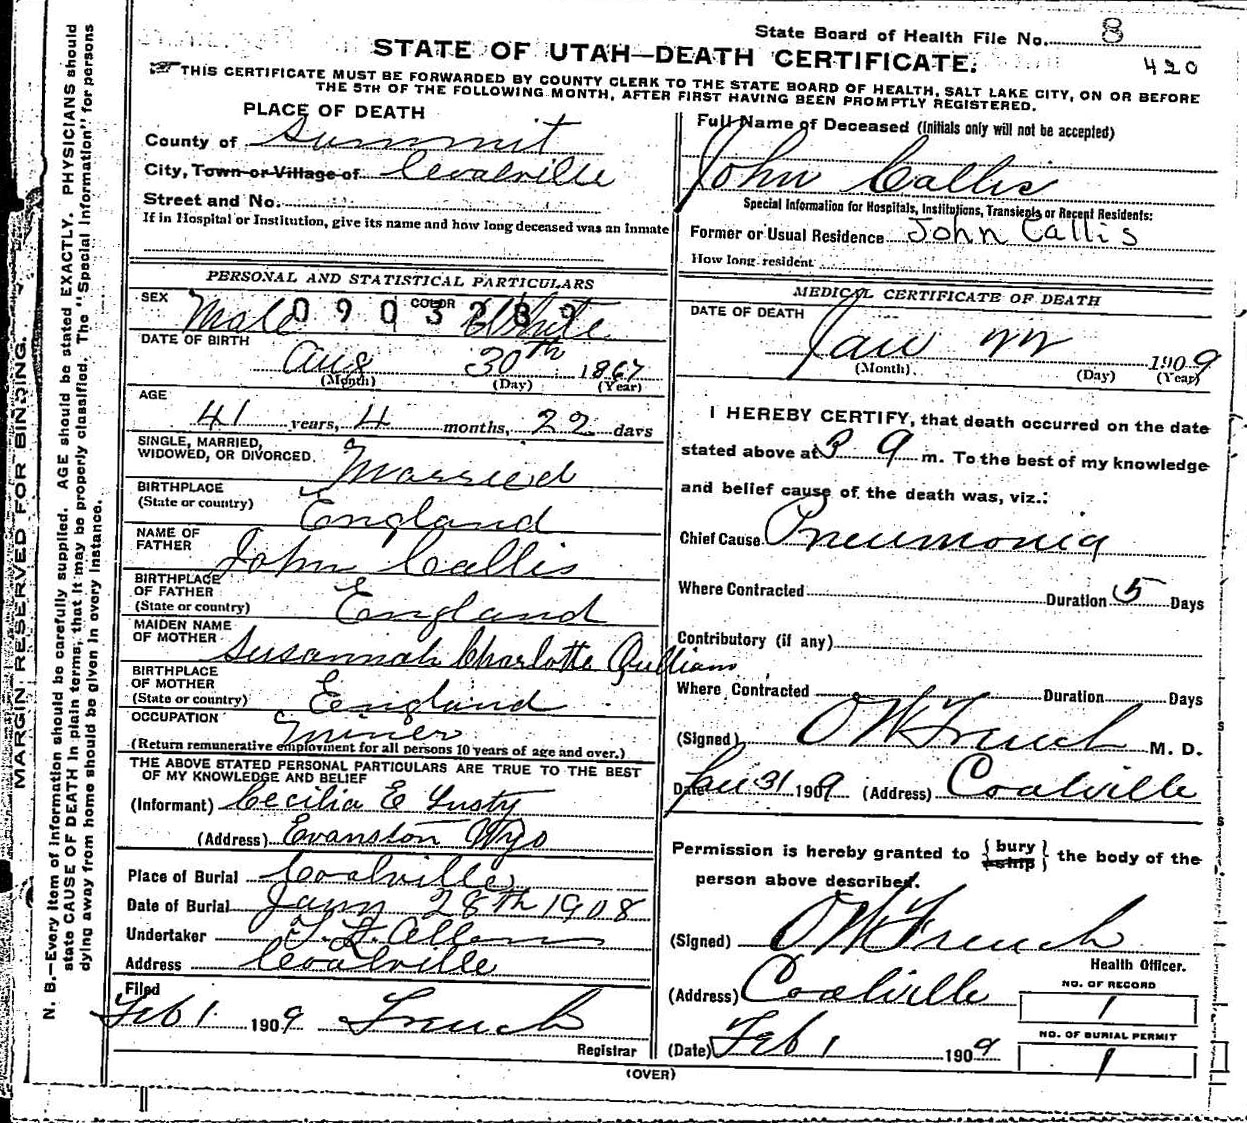 State Board of Health File No. 8
STATE OF UTAH—DEATH CERTIFICATE.
420
THIS CERTIFICATE MUST BE FORWARDED BY COUNTY CLERK TO THE STATE BOARD OF HEALTH, SALT LAKE CITY, ON OR BEFORE
THE 5TH OF THE FOLLOWING MONTH, AFTER FIRST HAVING BEEN PROMPTLY REGISTERED.
PLACE OF DEATH
County of Summit
City, Town or Village of Coalville
Street and No.
If in Hospital or Institution, give its name and how long deceased was an Inmate
PERSONAL AND STATISTICAL PARTICULARS
SEX Male COLOR White
0903289
DATE OF BIRTH
Aug 30th 1867
(Month) (Day) (Year)
AGE
41 years, 4 months, 22 days
SINGLE, MARRIED,
WIDOWED, OR DIVORCED. Married
BIRTHPLACE
(State or country) England
NAME OF
FATHER John Callis
BIRTHPLACE
OF FATHER
(State or country) England
MAIDEN NAME
OF MOTHER Susannah Charlotte
BIRTHPLACE
OF MOTHER
(State or country) England
OCCUPATION Miner
(Return remunerative employment for all persons 10 years of age and over.)
THE ABOVE STATED PERSONAL PARTICULARS ARE TRUE TO THE BEST
OF MY KNOWLEDGE AND BELIEF
(Informant) Cecilia E Lusty
(Address) Evanston Wyo
Place of Burial Coalville
Date of Burial Jany 28th 1908
Undertaker
Address Coalville
Filed
Feb 1 1909 French
Registrar
Full Name of Deceased (Initials only will not be accepted)
John Callis
Special Information for Hospitals, Institutions, Transients or Recent Residents:
Former or Usual Residence John Callis
How long resident
MEDICAL CERTIFICATE OF DEATH
DATE OF DEATH
Jan 22 1909
(Month) (Day) (Year)
I HEREBY CERTIFY, that death occurred on the date
stated above at 3 m. To the best of my knowledge
and belief cause of the death was, viz.:
Chief Cause Pneumonia
Where Contracted Duration 5 Days
Contributory (if any)
Where Contracted Duration Days
(Signed) O W French M. D.
Date Jan 31 1909 (Address) Coalville
Permission is hereby granted to { bury ship } the body of the
person above described.
(Signed) O W French
Health Officer.
(Address) Coalville
NO. OF RECORD
1
NO. OF BURIAL PERMIT
(Date) Feb 1 1909
1
(OVER)
MARGIN RESERVED FOR BINDING.
N. B.—Every item of information should be carefully supplied. AGE should be stated EXACTLY. PHYSICIANS should
state CAUSE OF DEATH in plain terms, that it may be properly classified. The "Special Information" for persons
dying away from home should be given in every instance.